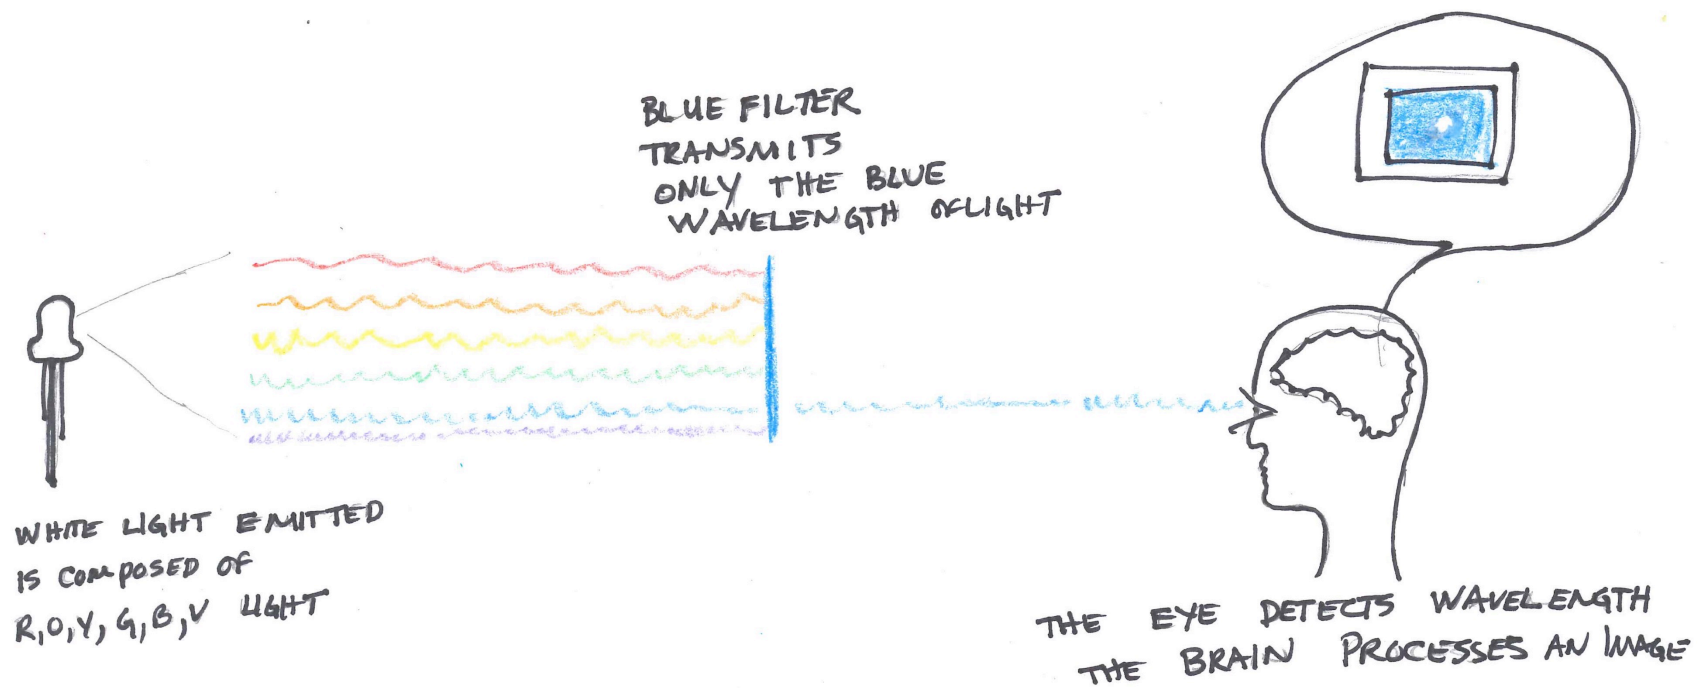 BLUE FILTER
TRANSMITS
ONLY THE BLUE
WAVELENGTH OF LIGHT
WHITE LIGHT EMITTED
IS COMPOSED OF
R,O,Y,G,B,V LIGHT
THE EYE DETECTS WAVELENGTH
THE BRAIN PROCESSES AN IMAGE